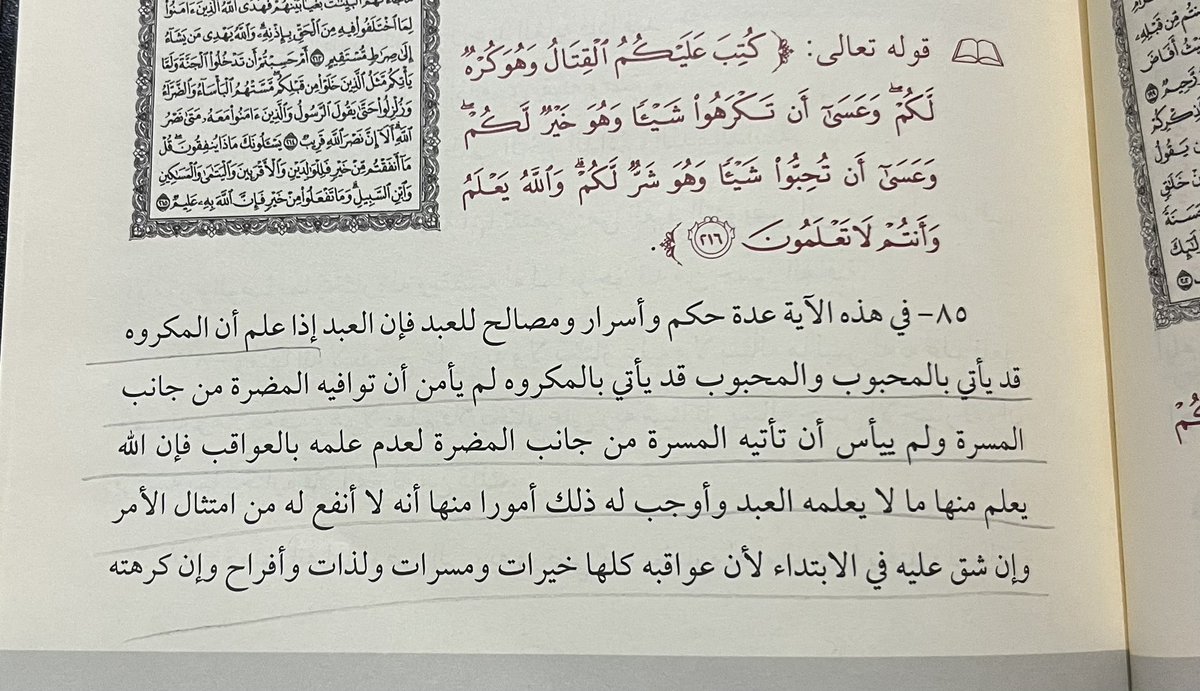 لِمَا اخْتَلَفُوا فِيهِ مِنَ الْحَقِّ بِإِذْنِهِ وَاللَّهُ يَهْدِي مَن يَشَاءُ
إِلَى صِرَاطٍ مُّسْتَقِيمٍ ٢١٣ أَمْ حَسِبْتُمْ أَن تَدْخُلُوا الْجَنَّةَ وَلَمَّا
يَأْتِكُم مَّثَلُ الَّذِينَ خَلَوْا مِن قَبْلِكُم مَّسَّتْهُمُ الْبَأْسَاءُ وَالضَّرَّاءُ
وَزُلْزِلُوا حَتَّى يَقُولَ الرَّسُولُ وَالَّذِينَ ءَامَنُوا مَعَهُ مَتَى نَصْرُ
اللَّهِ أَلَا إِنَّ نَصْرَ اللَّهِ قَرِيبٌ ٢١٤ يَسْـَٔلُونَكَ مَاذَا يُنفِقُونَ قُلْ
مَا أَنفَقْتُم مِّنْ خَيْرٍ فَلِلْوَالِدَيْنِ وَالْأَقْرَبِينَ وَالْيَتَامَى وَالْمَسَاكِينِ
وَابْنِ السَّبِيلِ وَمَا تَفْعَلُوا مِنْ خَيْرٍ فَإِنَّ اللَّهَ بِهِ عَلِيمٌ ٢١٥
قوله تعالى: ﴿ كُتِبَ عَلَيْكُمُ الْقِتَالُ وَهُوَ كُرْهٌ
لَّكُمْ ۖ وَعَسَىٰ أَن تَكْرَهُوا شَيْـًٔا وَهُوَ خَيْرٌ لَّكُمْ ۖ
وَعَسَىٰ أَن تُحِبُّوا شَيْـًٔا وَهُوَ شَرٌّ لَّكُمْ ۗ وَاللَّهُ يَعْلَمُ
وَأَنتُمْ لَا تَعْلَمُونَ ٢١٦ ﴾.
٨٥- في هذه الآية عدة حكم وأسرار ومصالح للعبد فإن العبد إذا علم أن المكروه
قد يأتي بالمحبوب والمحبوب قد يأتي بالمكروه لم يأمن أن توافيه المضرة من جانب
المسرة ولم ييأس أن تأتيه المسرة من جانب المضرة لعدم علمه بالعواقب فإن الله
يعلم منها ما لا يعلمه العبد وأوجب له ذلك أمورا منها أنه لا أنفع له من امتثال الأمر
وإن شق عليه في الابتداء لأن عواقبه كلها خيرات ومسرات ولذات وأفراح وإن كرهته